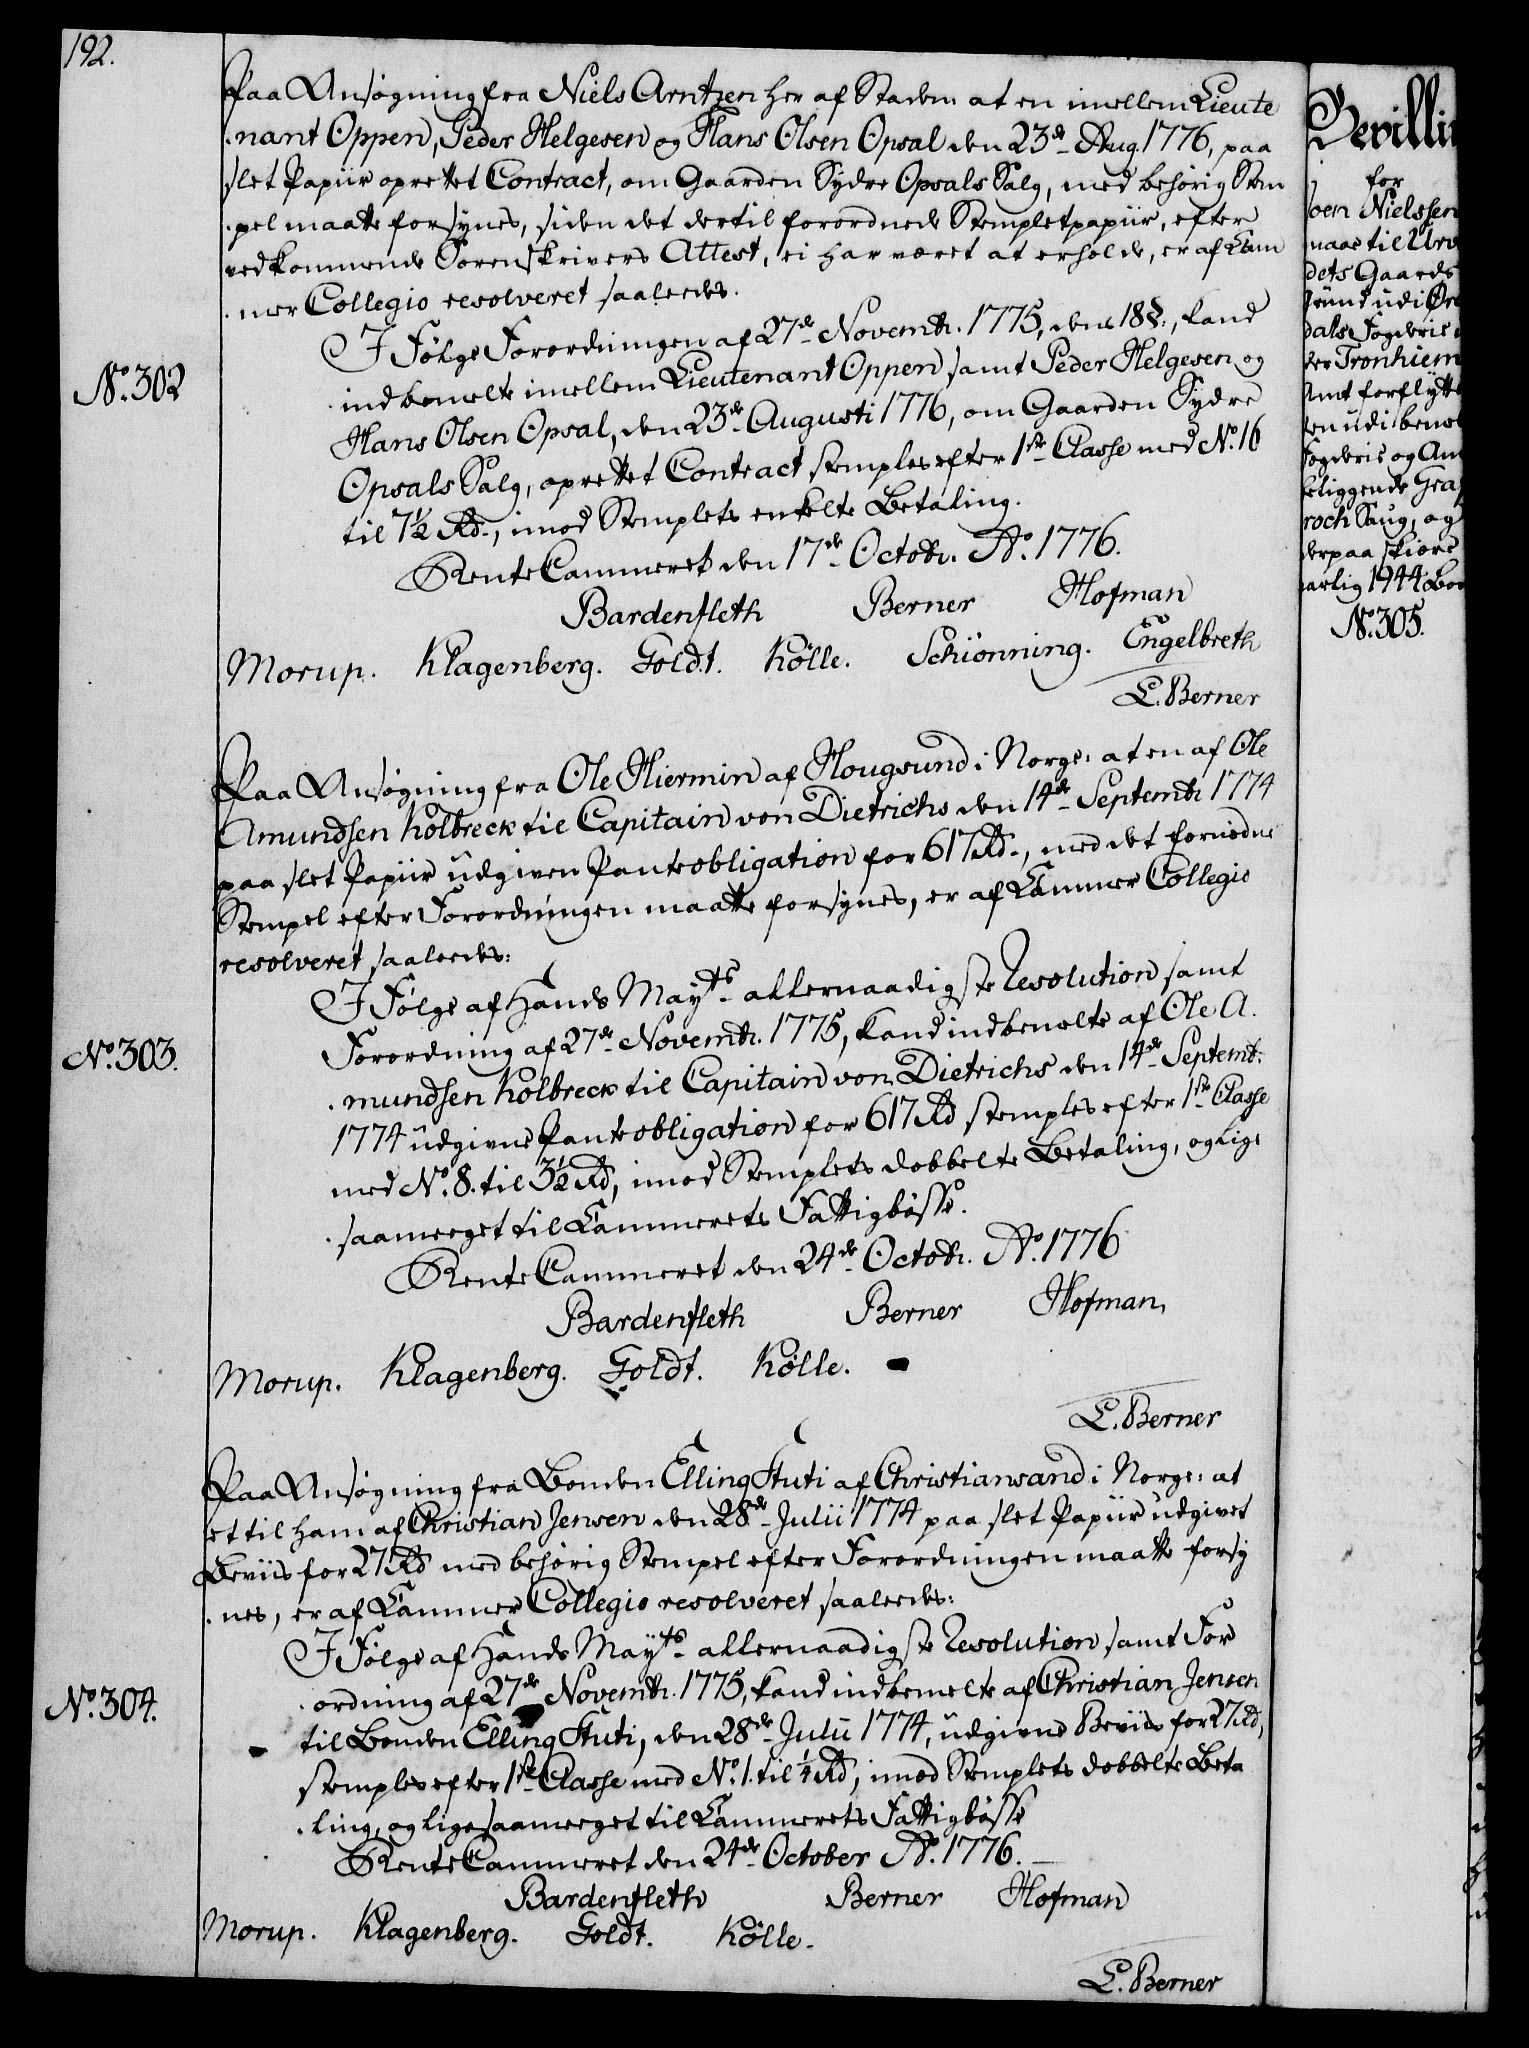 192.
Paa Ansøgning fra Niels Arntzen her af Staden: at en imellem Lieute
-nant Oppen, Peder Helgesen og Hans Olsen Opsal den 23de Aug. 1776, paa
slet Papiir oprettet Contract, om Gaarden Sydre Opsals Salg, med behørig Stem
-pel maatte forsynes, siden det dertil forordnede Stempletpapiir, efter
vedkommende Sorenskrivers Attest, ei har været at erholde, er af Cam
-mer Collegio resolveret saaledes.
No. 302
I Følge Forordningen af 27de Novembr. 1775, dens 18 §., kand
indbemelte imellem Lieutenant Oppen samt Peder Helgesen og
Hans Olsen Opsal, den 23de Augusti 1776, om Gaarden Sydre
Opsals Salg, oprettet Contract stemples efter 1ste Classe med No. 16
til 7½ Rd., imod Stemplets enkelte Betaling.
RenteCammeret den 17de Octobr. Ao. 1776.
Bardenfleth Berner Hofman
Morup. Klagenberg. Goldt. Kølle. Schiønning. Engelbreth
L. Berner
Paa Ansøgning fra Ole Hiermin af Hougsund i Norge: at en af Ole
Amundsen Kolbreck til Capitain von Dietrichs den 14de Septembr 1774
paa slet Papiir udgiven Panteobligation for 617 Rd., med det fornødne
Stempel efter Forordningen maatte forsynes, er af Cammer Collegio
resolveret saaledes:
No. 303.
I Følge af Hands Mayts allernaadigste Resolution samt
Forordning af 27de Novembr. 1775, kand indbemelte af Ole A.
-mundsen Kolbreck til Capitain von Dietrichs den 14de Septembr.
1774 udgivne Panteobligation for 617 Rd stemples efter 1ste Classe
med No. 8. til 3½ Rd, imod Stemplets dobbelte Betaling, og lige
saameeget til Cammerets Fattigbøsse.
RenteCammeret den 24de Octobr. Ao. 1776
Bardenfleth Berner Hofman,
Morup. Klagenberg. Goldt. Kølle.
L. Berner
Paa Ansøgning fra Bonden Elling Stuti af Christiansand i Norge: at
et til ham af Christian Jensen den 28de Julii 1774 paa slet Papiir udgivet
Beviis for 27 Rd med behørig Stempel efter Forordningen maatte forsy
-nes, er af Cammer Collegio resolveret saaledes:
No. 304.
I Følge af Hands Mayts allernaadigste Resolution samt For
-ordning af 27de Novembr. 1775, kand indbemelte af Christian Jensen
til Bonden Elling Stuti, den 28de Julii 1774, udgivne Beviis for 27 Rd,
stemples efter 1ste Classe med No. 1. til ¼ Rd, imod Stemplets dobbelte Beta
-ling, og ligesaameeget til Cammerets Fattigbøsse
RenteCammeret den 24de October Ao. 1776.
Bardenfleth Berner Hofman
Morup. Klagenberg. Goldt. Kølle.
L. Berner
Bevillin
for
Nielssen
naae til
dets Gaards
Grund udi
dals Fogderie
der Tronhiem
Amt forflytte
udi
Fogderie og Am
beliggende
Saug, og
derpaa skiære
aarlig 1944
No. 305.